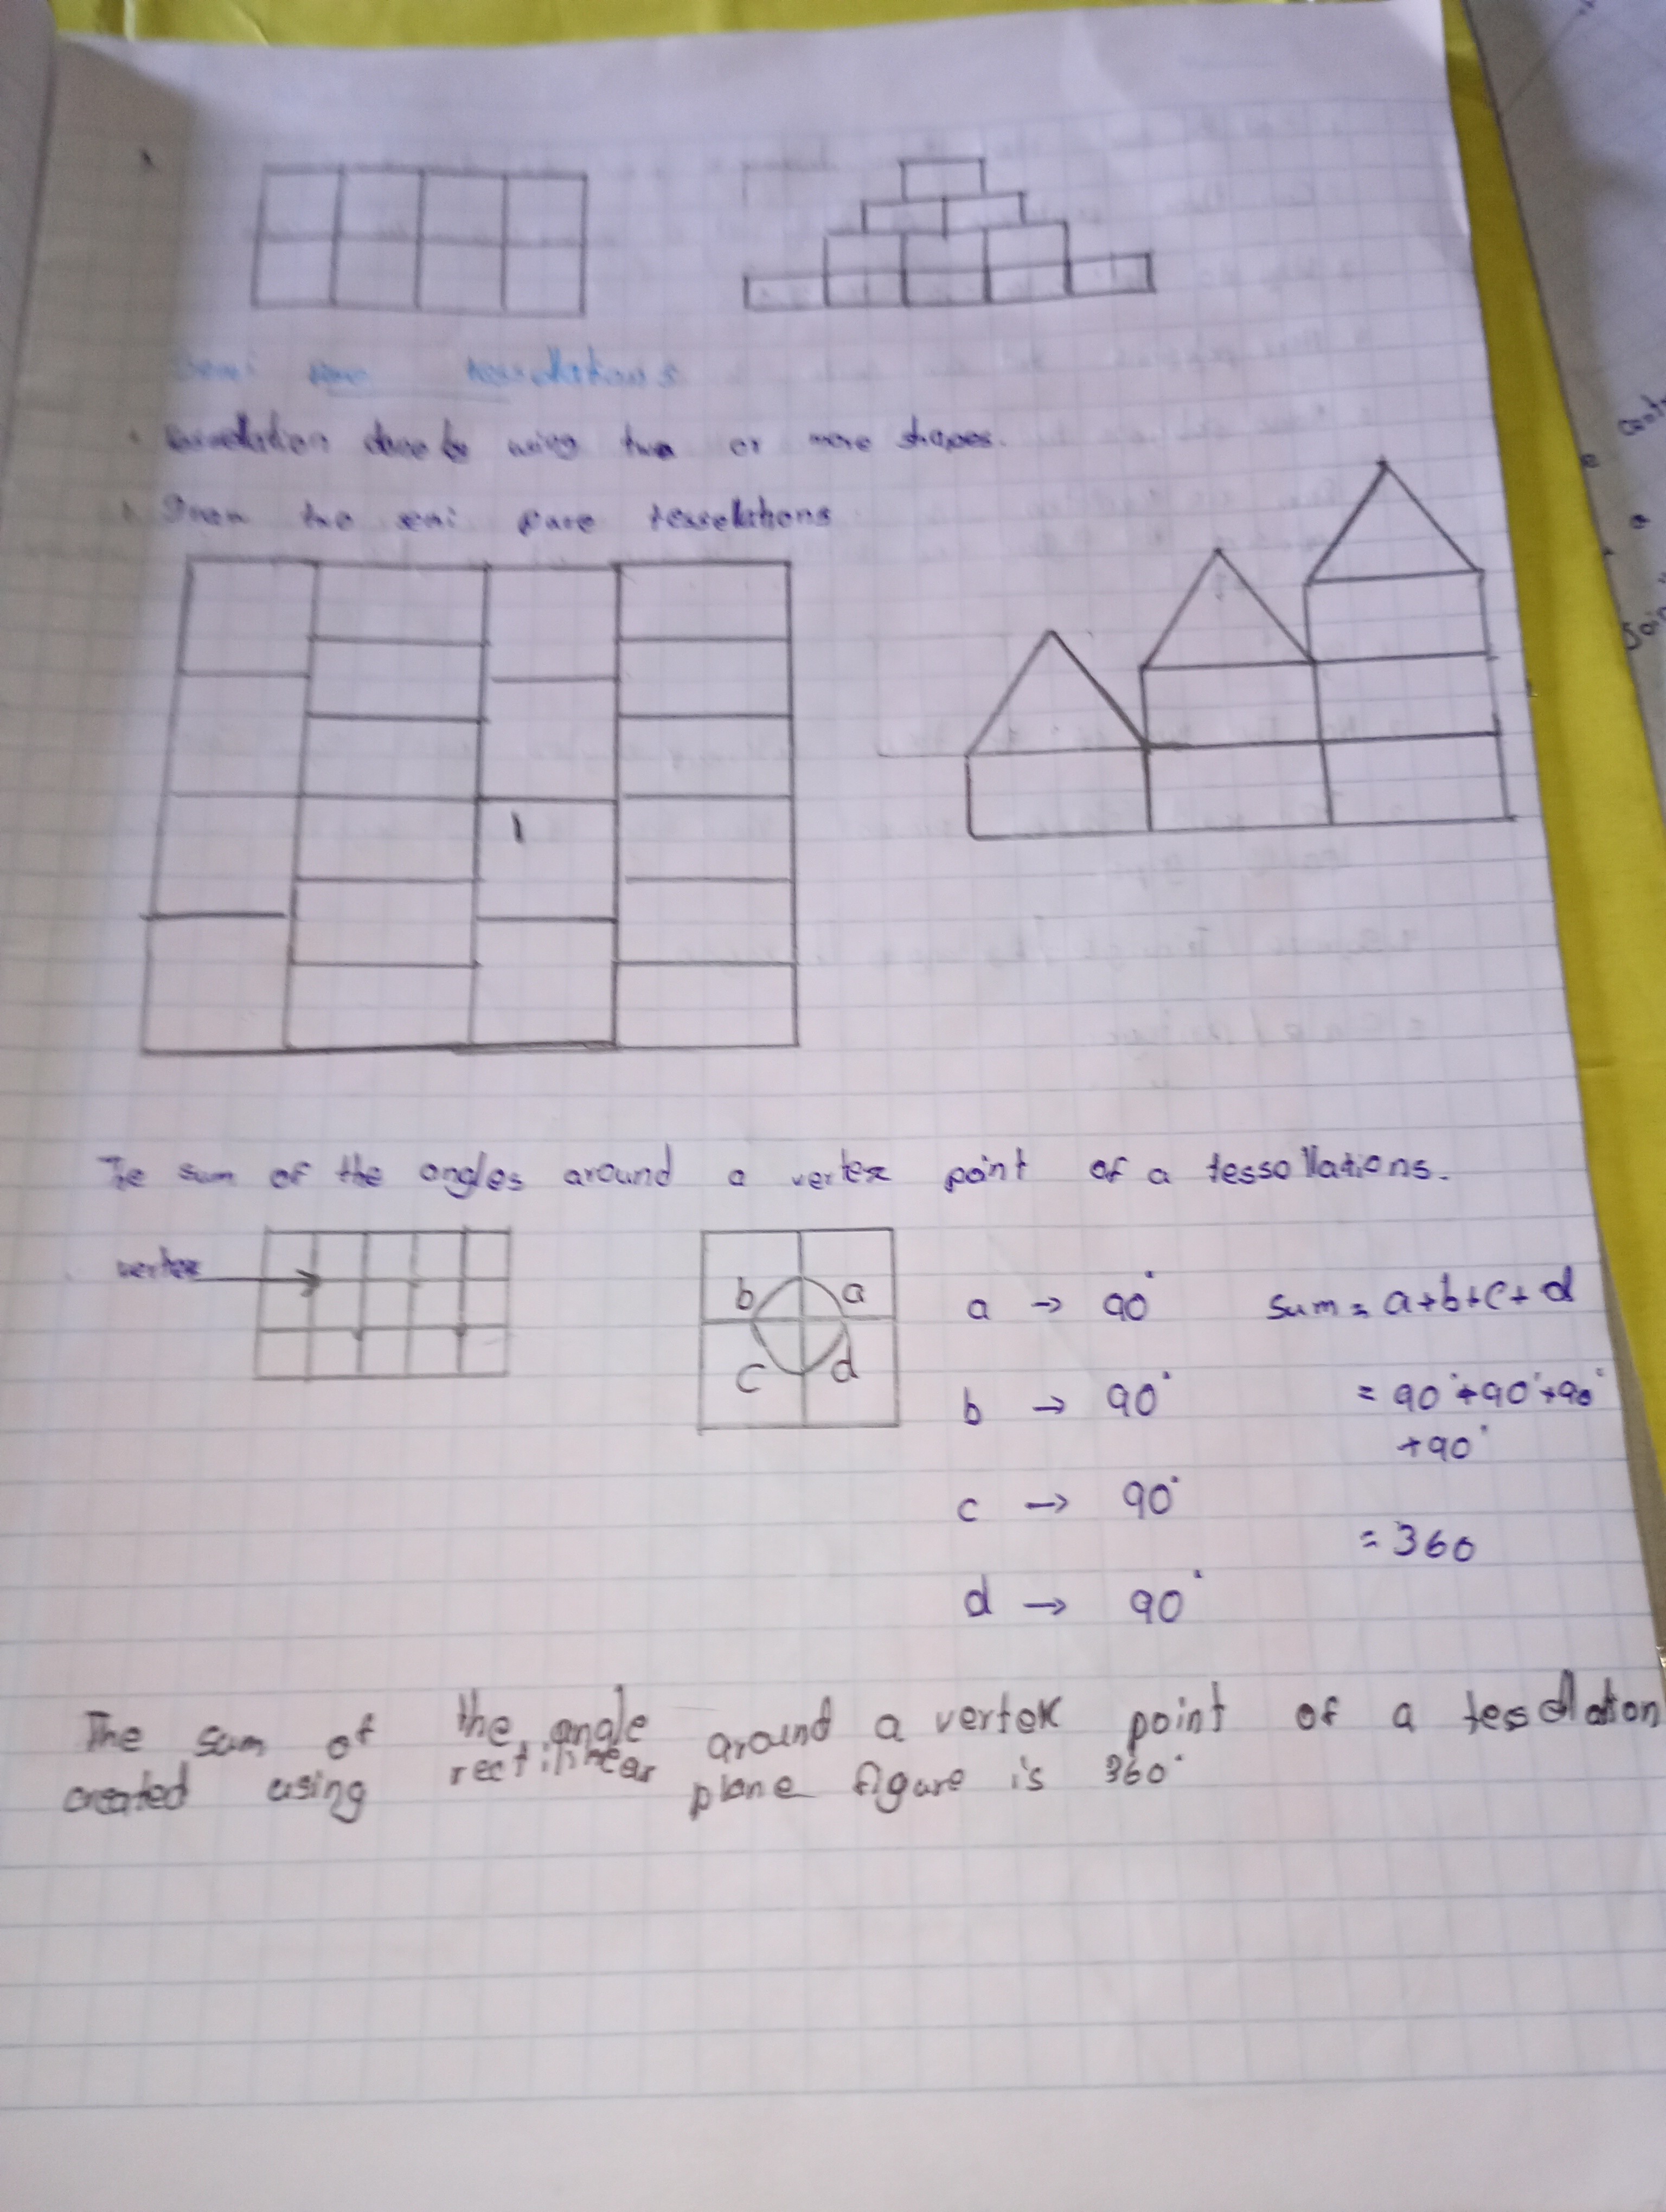 Semi pure tessellations
tessellation done by using two or more shapes.
Draw two semi pure tesselations
Te sum of the angles around a vertex point of a tessollations.
vertex
b a
c d
a → 90° sum = a+b+c+d
b → 90° = 90°+90°+90°
+90°
c → 90°
= 360
d → 90°
The sum of the angle around a vertex point of a tesellation
created using rectilinear plane figure is 360°